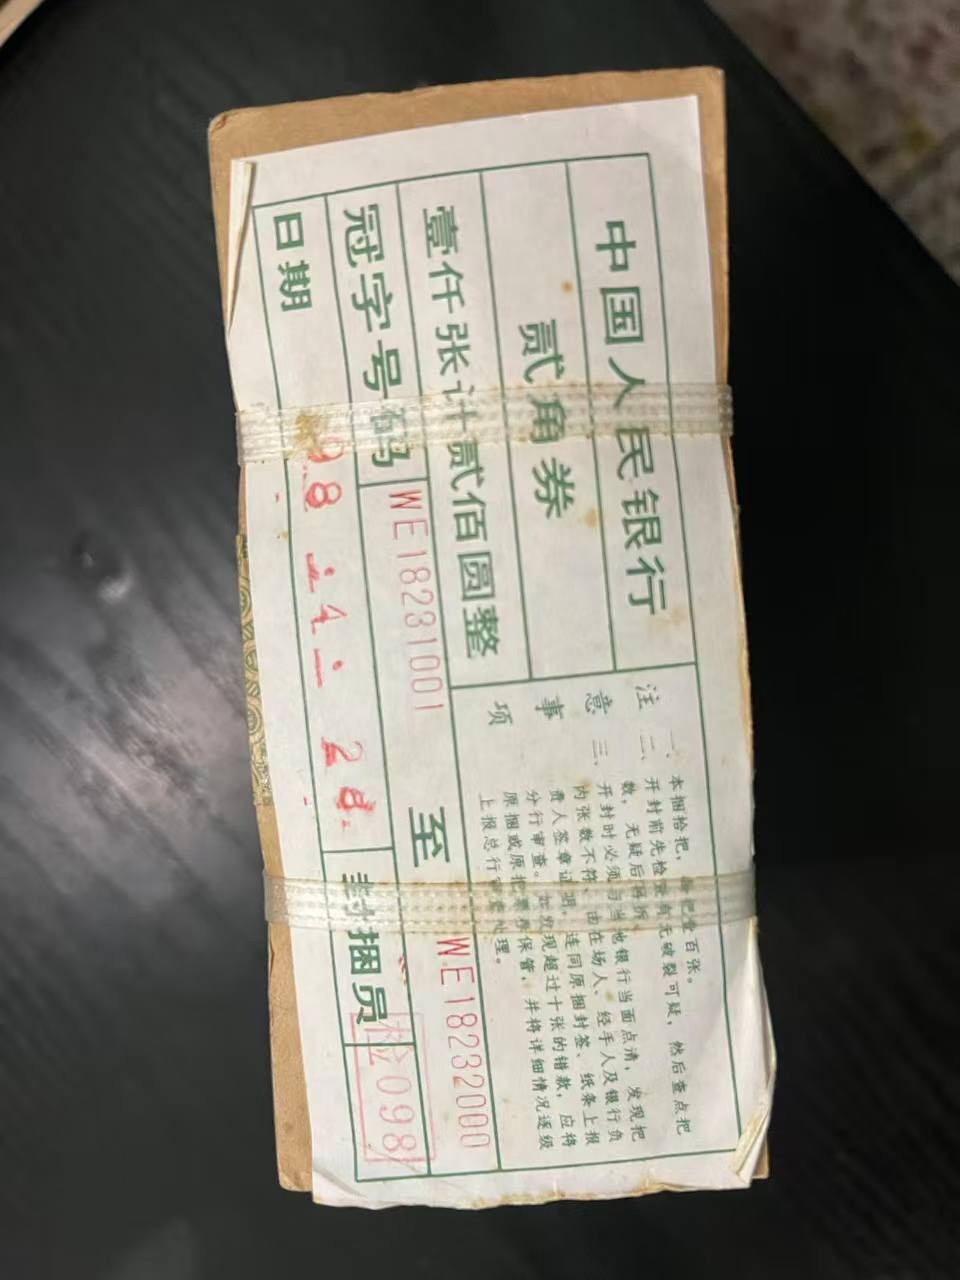 中国人民银行
贰角券
壹仟张计贰佰圆整
冠字号码 WE18231001 至 WE18232000
日期 98 封捆员 检098
注意事项
一、本捆拾把，每把壹百张。
二、开封前先检查有无破裂可疑，然后查点把
数，无疑后再拆
三、开封时必须与当地银行当面点清，发现把
内张数不符，由在场人、经手人及银行负
责人签章证明，连同原捆封签、纸条上报
分行审查。如发现超过十张的错款，应将
原捆或原把票券保管，并将详细情况逐级
上报总行审查处理。